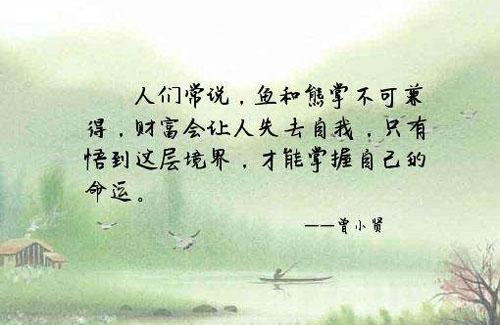 人们常说，鱼和熊掌不可兼
得，财富会让人失去自我，只有
悟到这层境界，才能掌握自己的
命运。
——曾小贤